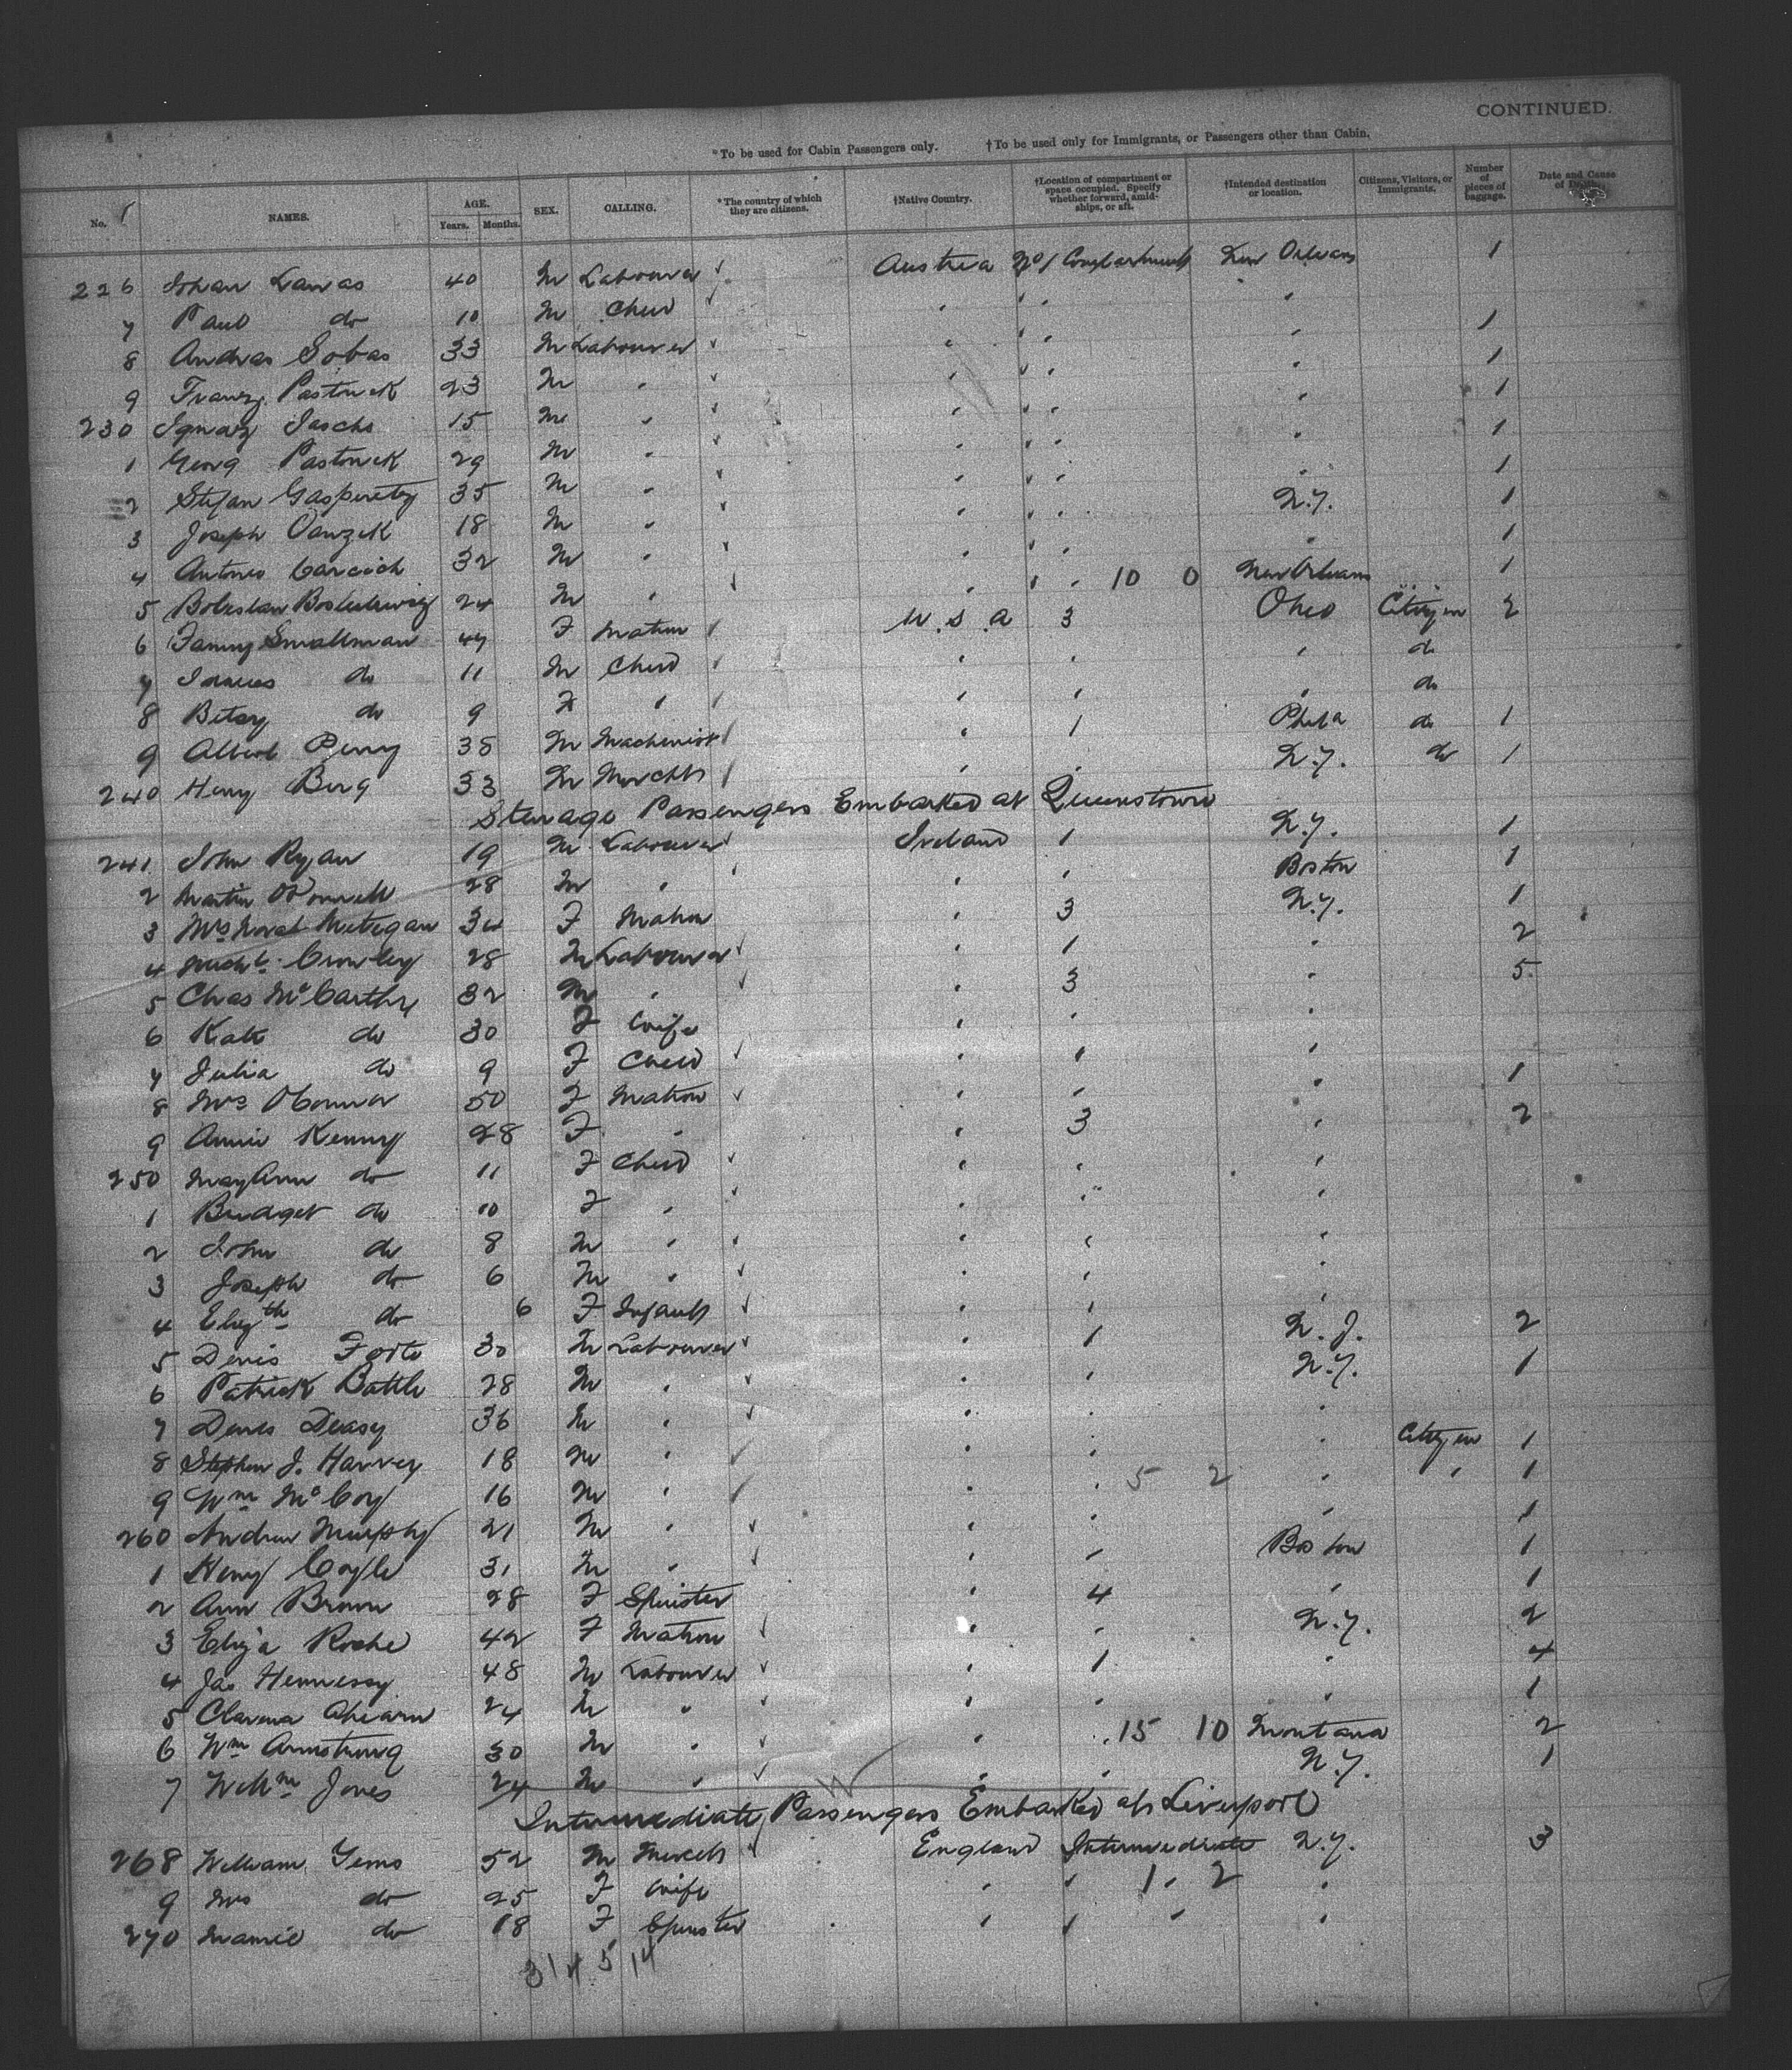 CONTINUED.
*To be used for Cabin Passengers only. †To be used only for Immigrants, or Passengers other than Cabin.
No. NAMES. AGE. Years. Months. SEX. CALLING. *The country of which they are citizens. †Native Country. †Location of compartment or space occupied. Specify whether forward, amidships, or aft. †Intended destination or location. Citizens, Visitors, or Immigrants. Number of pieces of baggage. Date and Cause of Death.
226 Johan 40 M Labourer Austria No 1 Compartment New Orleans 1
7 Paul do 10 M Child
8 Andras 33 M Labourer 1
9 Franz Pastorek 23 M " 1
230 Ignaz 15 M " 1
1 Georg Pastorek 29 M " 1
2 Stefan 35 M " 1
3 Joseph 18 M " N.Y. 1
4 Antonio 32 M " 1
5 24 M " 10 0 New Orleans 1
6 Fanny Smallman 47 F Matron U.S.A 3 Ohio Citizen 2
7 do 11 M Child do
8 Betsy do 9 F " do
9 Albert Perry 38 M Machinist 1 Phila do 1
240 Henry Berg 33 M N.Y. do 1
Steerage Passengers Embarked at Queenstown
241 John Ryan 19 M Labourer Ireland 1 N.Y. 1
2 Martin O'Donnell 28 M " Boston 1
3 Mrs Norah 34 F Matron 3 N.Y. 1
4 Michl Crowley 28 M Labourer 1 2
5 Chas McCarthy 32 M " 3 5
6 Kate do 30 F Wife
7 Julia do 9 F Child
8 Mrs O'Connor 50 F Matron 1
9 Annie Kenny 28 F " 3 2
250 MaryAnn do 11 F Child
1 Bridget do 10 F "
2 John do 8 M "
3 Joseph do 6 M "
4 Elizth do 6 F Infant
5 Denis 30 M Labourer 1 N.J. 2
6 Patrick Battle 28 M " N.Y. 1
7 Denis Deasy 36 M "
8 Stephen J. Harvey 18 M " Citizen 1
9 Wm McCoy 16 M " 5 2 " 1
260 Andrew Murphy 21 M " 1
1 Henry Coyle 31 M " Boston 1
2 Ann Brown 28 F Spinster 4 1
3 Eliza Roche 42 F Matron N.Y. 2
4 Jas Hennessy 48 M Labourer 1 4
5 Ahearn 24 M " 1
6 Wm Armstrong 30 M " 15 10 Montana 2
7 Willm Jones 24 M " N.Y. 1
Intermediate Passengers Embarked at Liverpool
268 William 52 M Merch England Intermediate N.Y. 3
9 Mrs do 25 F Wife 1 2
270 Mamie do 18 F Spinster
31 4 5 14